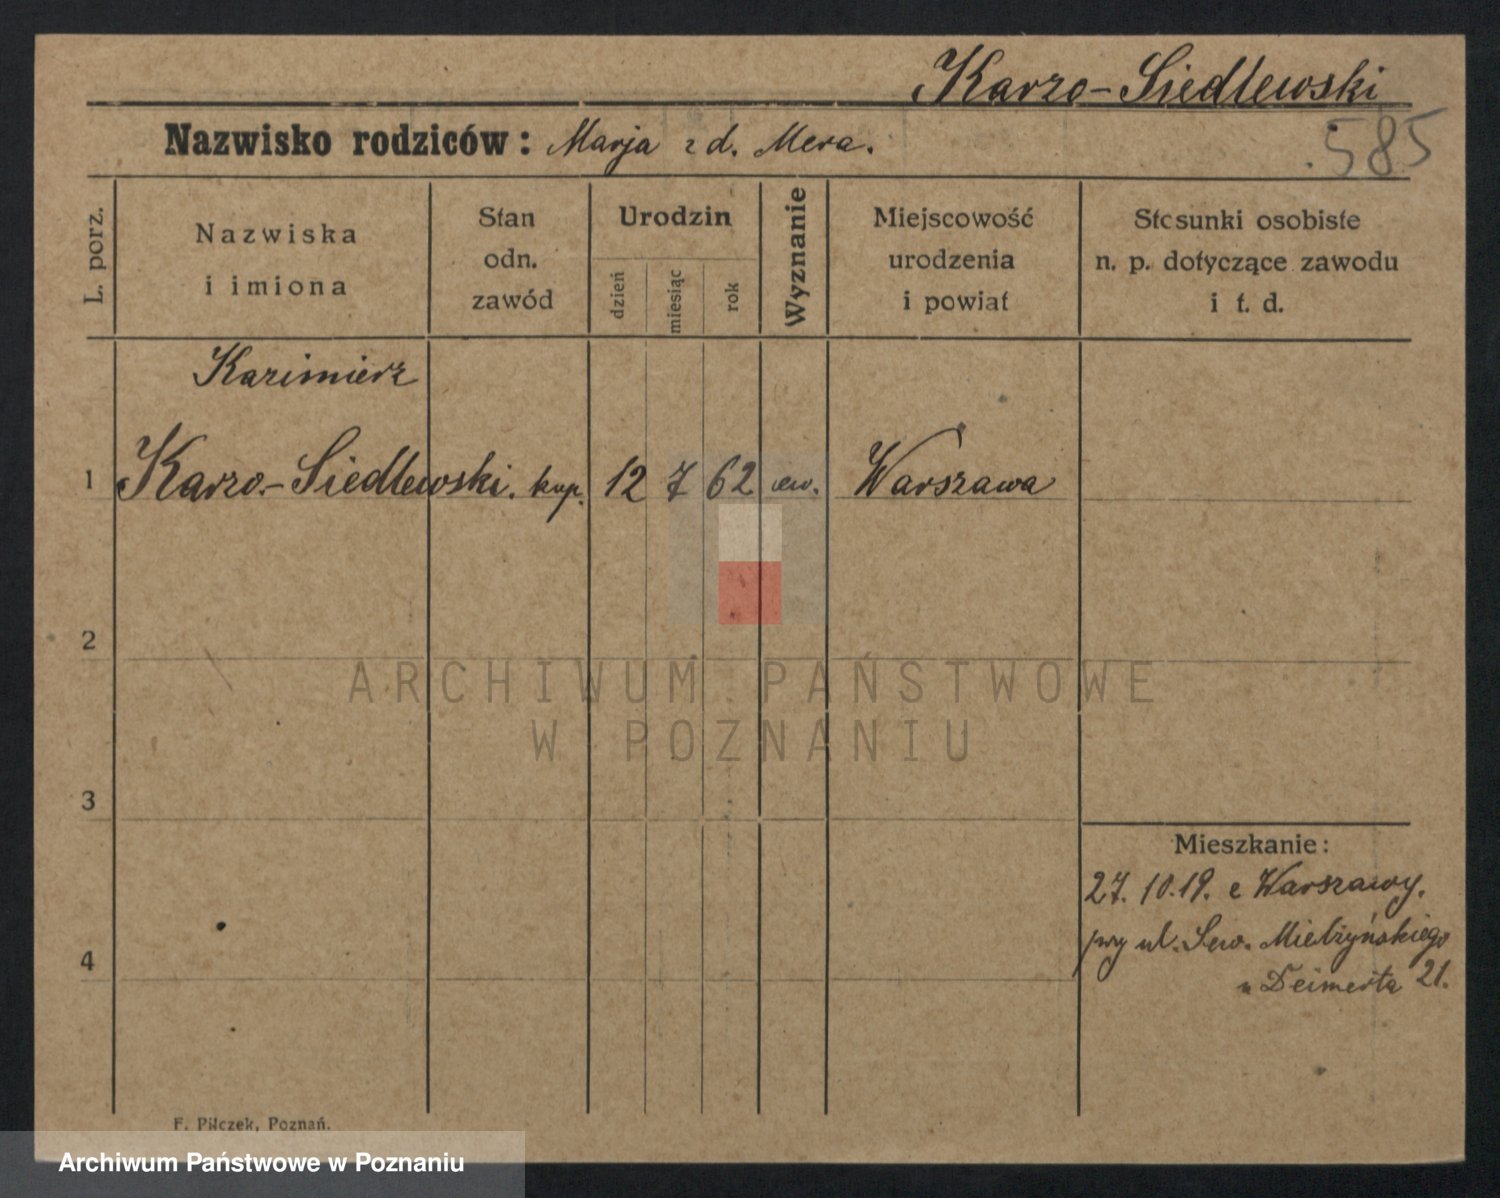 Karzo-Siedlewski
Nazwisko rodziców: Marja z d. Mera.
585
L. porz.
Nazwiska
i imiona
Stan
odn.
zawód
Urodzin
dzień
miesiąc
rok
Wyznanie
Miejscowość
urodzenia
i powiat
Stosunki osobiste
n. p. dotyczące zawodu
i t. d.
Kazimierz
1 Karzo-Siedlewski. kup. 12 7 62 ew. Warszawa
2
ARCHIWUM PAŃSTWOWE
W POZNANIU
3
Mieszkanie:
27. 10. 19. z Warszawy.
przy ul. Sew. Mielżyńskiego
4
u Deimerta 21.
F. Pilczek, Poznań.
Archiwum Państwowe w Poznaniu